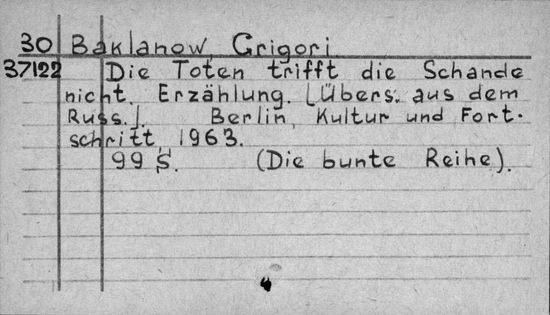 30 Baklanow, Grigori
37122 Die Toten trifft die Schande
nicht. Erzählung. [Übers. aus dem
Russ.]. Berlin, Kultur und Fort-
schritt, 1963.
99 S. (Die bunte Reihe).